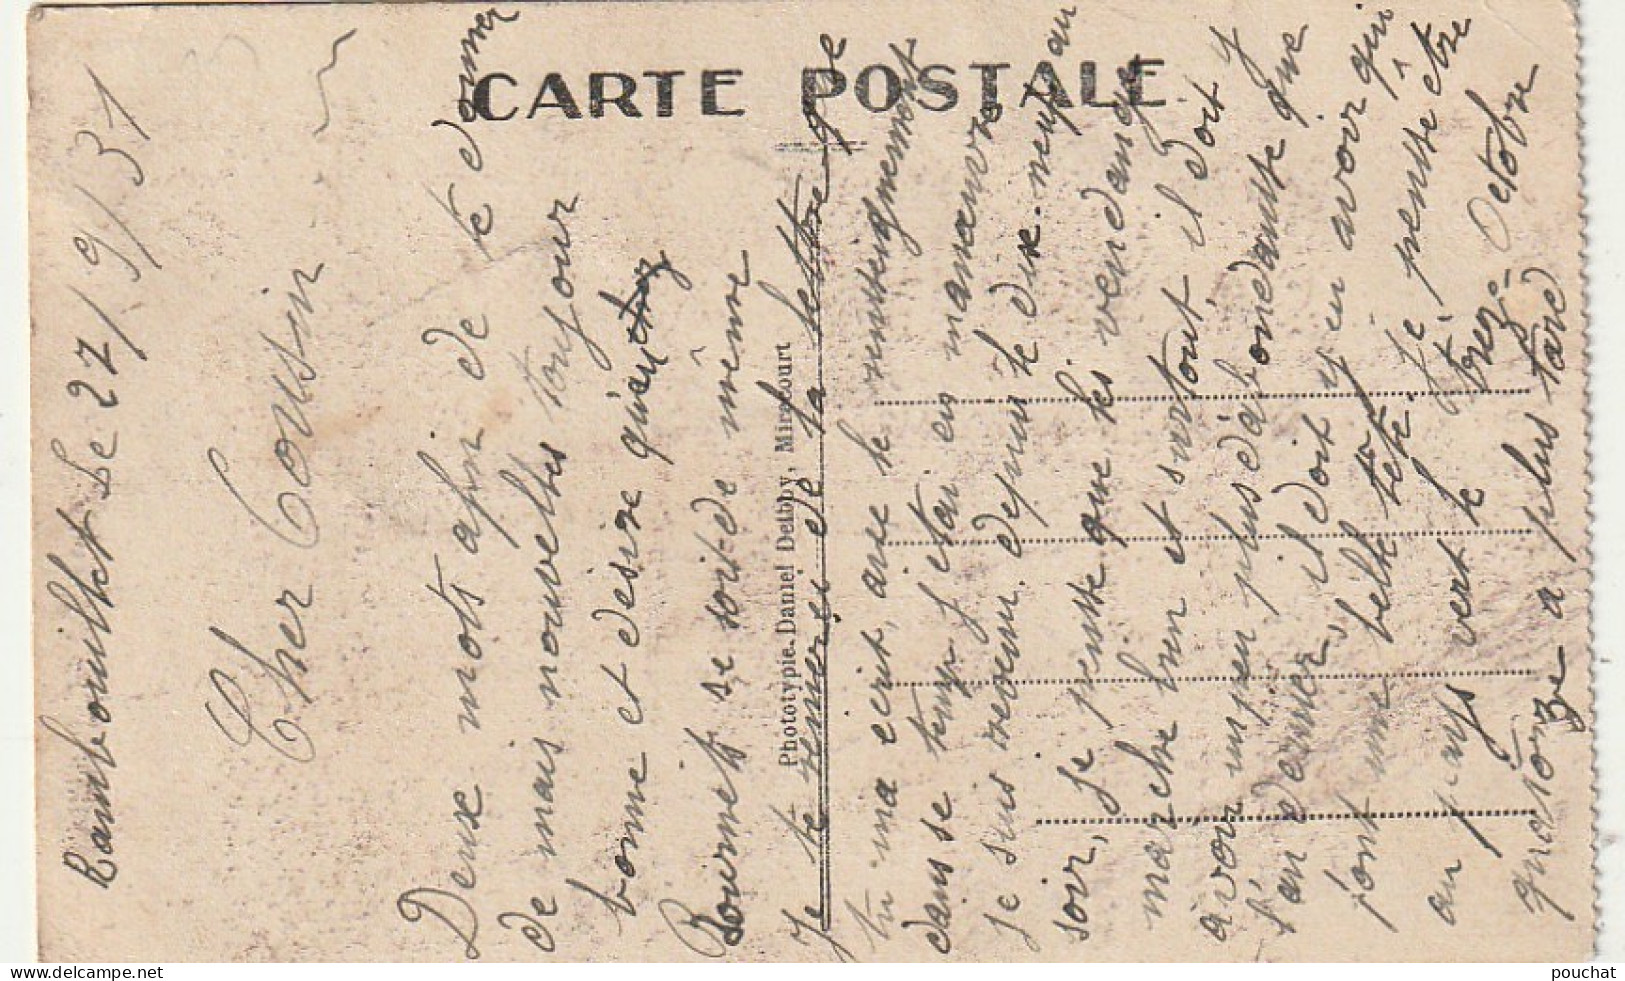 CARTE POSTALE
Phototypie. Daniel Delboy, Mirecourt
Rambouillet Le 27/9/31
Cher Cousin
Deux mots afin de te donner
de mais nouvelles toujour
bonne et desire qu'au
Bournets se soit de même
Je te remerci de la lettre que
tu ma ecrit, avec le renseignement
dans se temps j'etai en manœuvre
Je suis revenu depuis le dix-neuf au
soir, Je pensse que les vendange
marche bien et surtout il doit y
avoir un peu plus d'abondansse que
l'an dernier, il doit y en avoir qui
j'ont une belle tête. Je pensse être
au pays vert le treize Octobre
quatorze a plus tard
pouchat